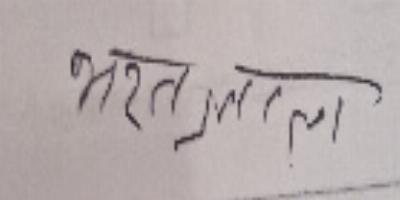 भरत लाल